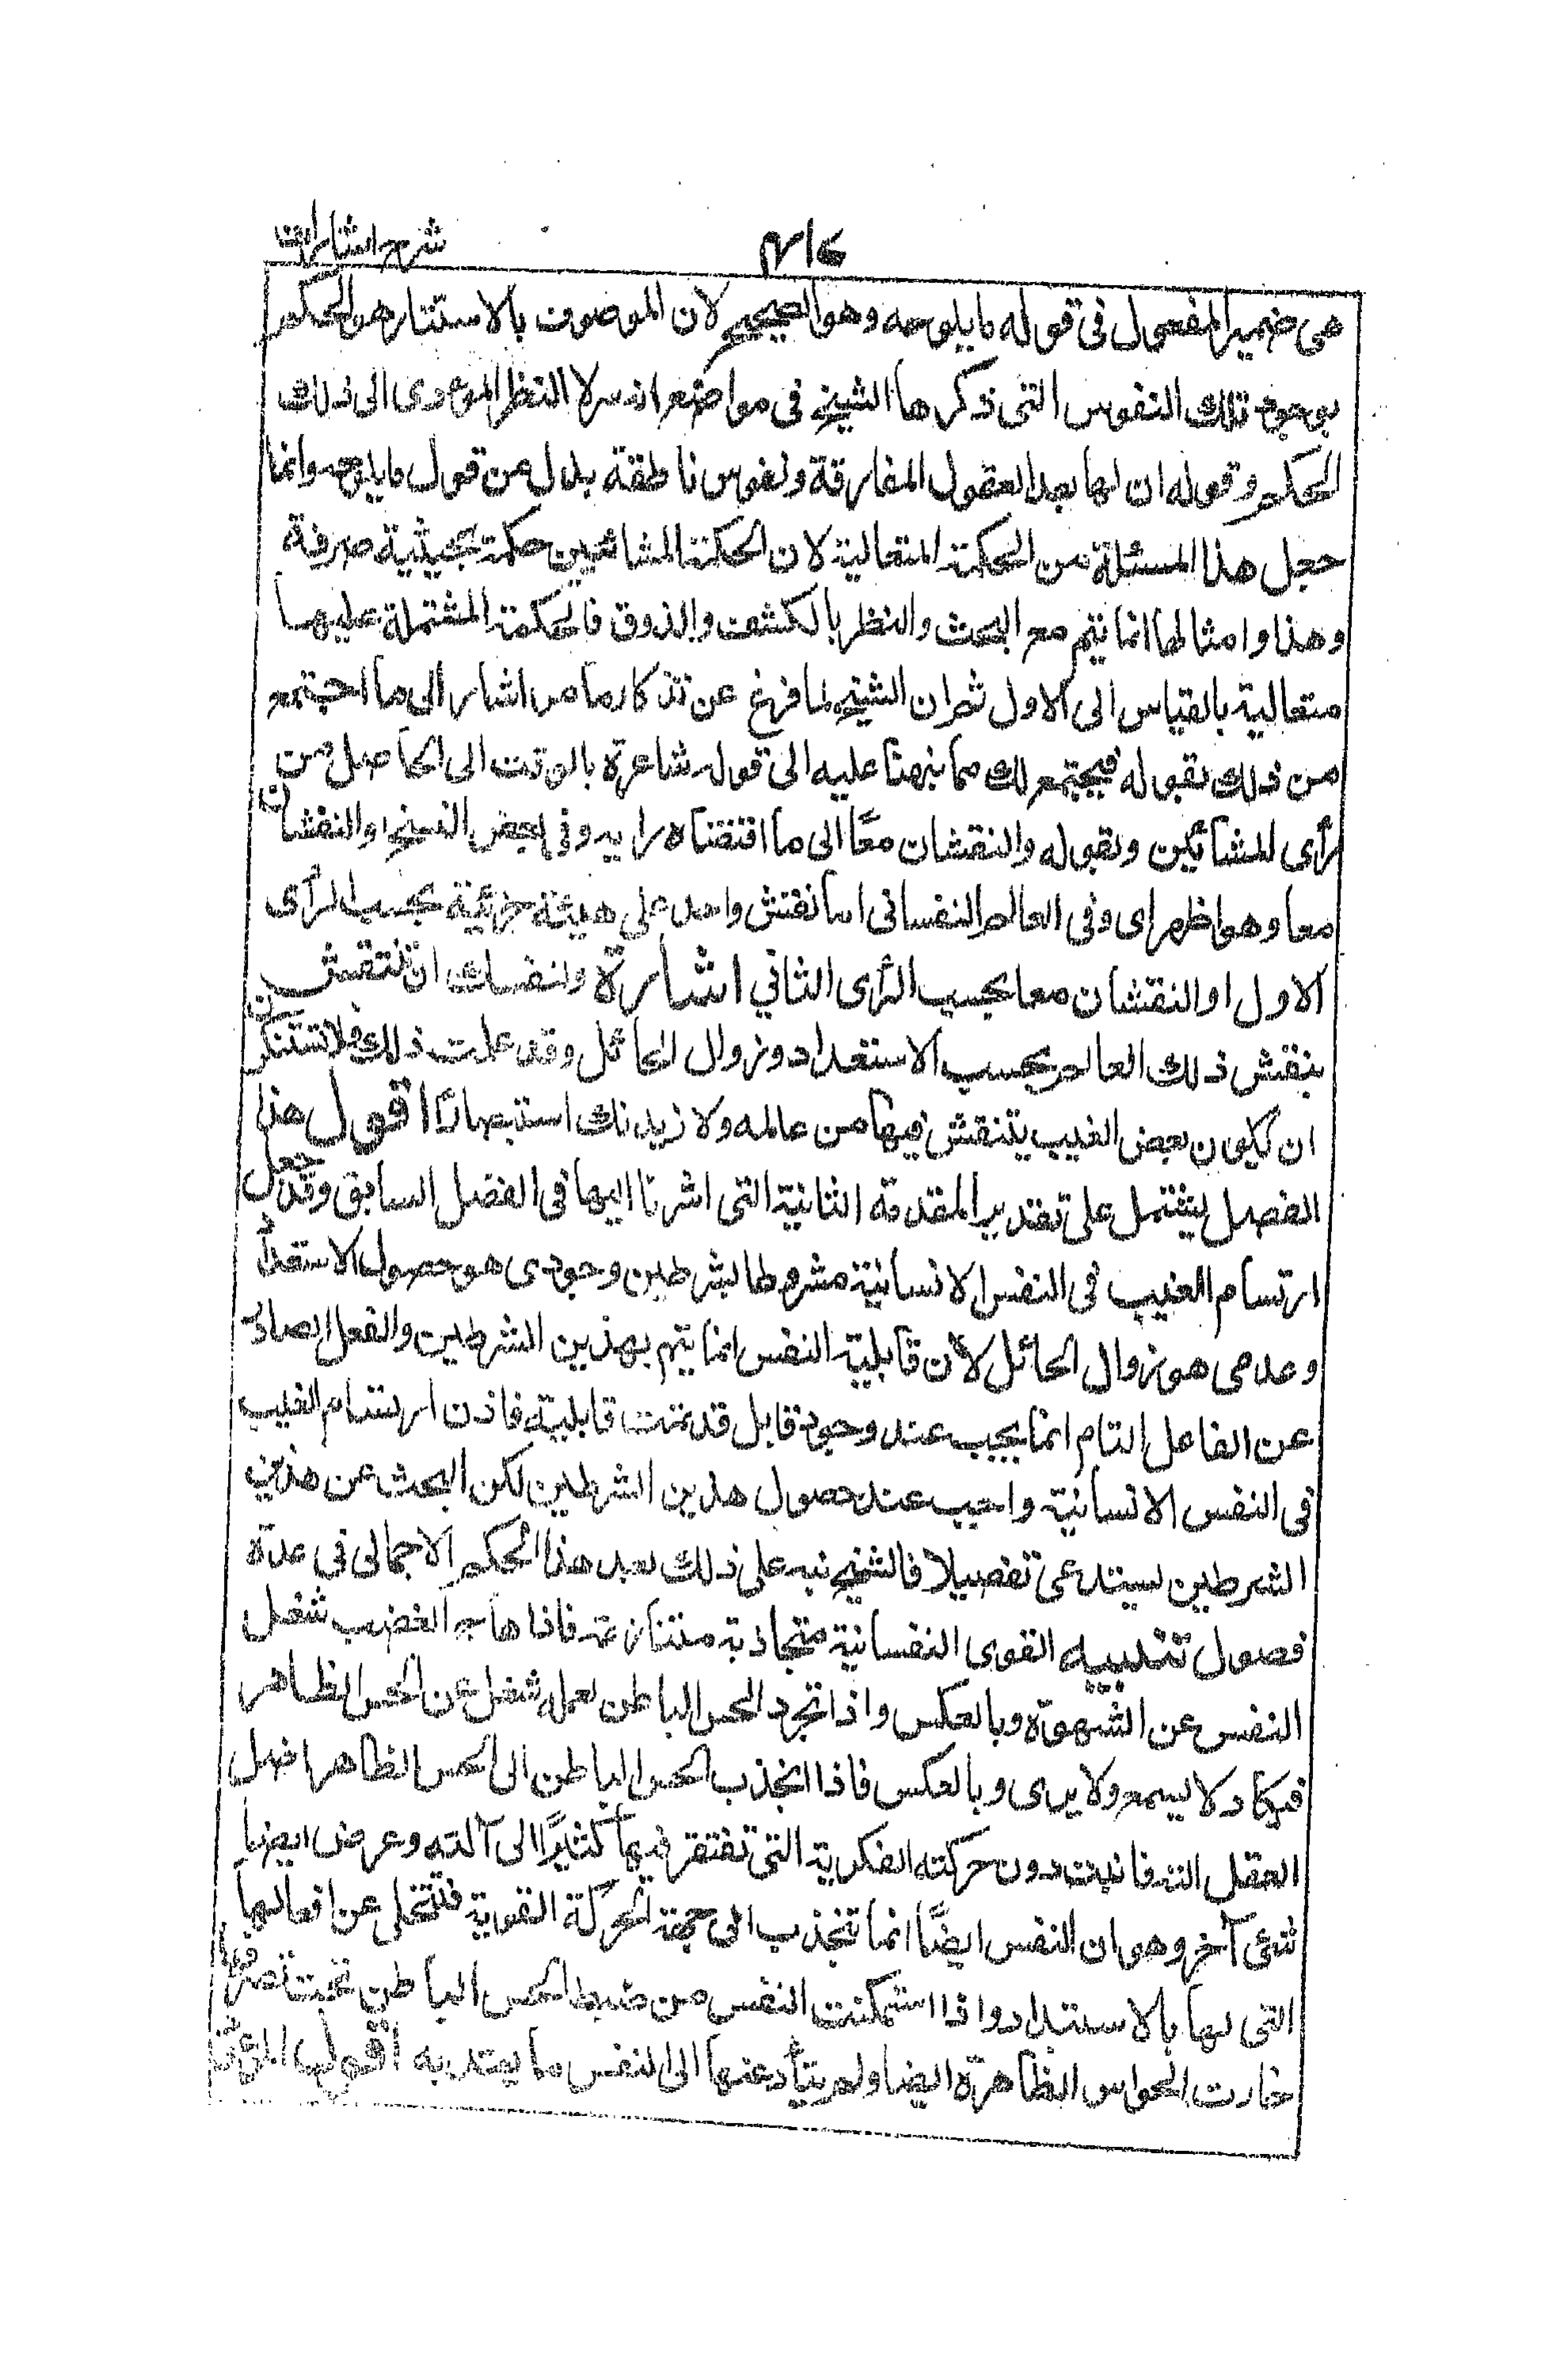 شرح اشارات
هى ضمير المفعول فى قوله ما يلوحه وهو الصحيح لان الموصوف بالاستتار هو الحكم
بوجود تلك النفوس التى ذكرها الشيخ فى مواضع انه سر لا النظر المؤدى الى ذلك
الحكم وقوله ان لها بعد العقول المفارقة ونفوس ناطقة بدل من قول ما يلوحه وانما
جعل هذا المسئلة من الحكمة المتعالية لان الحكمة المشائيين حكمة بحيثية صرفة
وهذا وامثالها انما يتم مع البحث والنظر بالكشف والذوق فالحكمة المشتملة عليها
متعالية بالقياس الى الاول ثم ان الشيخ لما فرغ عن تذكار ما مر اشار الى ما اجتمع
من ذلك بقوله فيجتمع لك مما نبهنا عليه الى قوله شاعرة بالوقت الى الحاصل من
رأى المشائين وبقوله والنقشان معًا الى ما اقتضاه رايه وفى بعض النسخ او النقشان
معا وهو اظهر اى وفى العالم النفسانى اما نقش واحد على هيئة جزئية بحسب الرأى
الاول او النقشان معا بحسب الرأى الثانى اشارة ولنفسك ان تنتقش
بنقش ذلك العالم بحسب الاستعداد وزوال الحائل وقد علمت ذلك فلا تستنكرن
ان يكون بعض الغيب ينتقش فيها من عالمه ولازيدنك استبصارًا اقول هذا
الفصل يشتمل على تقدير المقدمة الثانية التى اشرنا اليها فى الفصل السابق وقد جعل
ارتسام الغيب فى النفس الانسانية مشروطا بشرطين وجودى هو حصول الاستعداد
وعدمى هو زوال الحائل لأن قابلية النفس انما يتم بهذين الشرطين والفعل الصادر
عن الفاعل التام انما يجب عند وجود قابل قد تمت قابليته فاذن ارتسام الغيب
فى النفس الانسانية واجب عند حصول هذين الشرطين لكن البحث عن هذين
الشرطين يستدعى تفصيلا فالشيخ نبه على ذلك بعد هذا الحكم الاجمالى فى عدة
فصول تنبيه القوى النفسانية متجاذبة متنازعة فاذا هاج الغضب شغل
النفس عن الشهوة وبالعكس واذا تجرد الحس الباطن لعمله شغل عن الحس الظاهر
فيكاد لا يسمع ولا يرى وبالعكس فاذا انجذب الحس الباطن الى الحس الظاهر اضل
العقل التـ فانبت دون حركته الفكرية التى تفتقر فيها كثيرًا الى آلته وعرض ايضا
شئ آخر وهو ان النفس ايضًا انما تنجذب الى جهة الحركة القوية فتتخلى عن افعالها
التى لها بالاستبداد واذا استمكنت النفس من ضبط الحس الباطن تحت تصرفها
خارت الحواس الظاهرة ايضا ولم يتأد عنها الى النفس ما يعتد به اقول